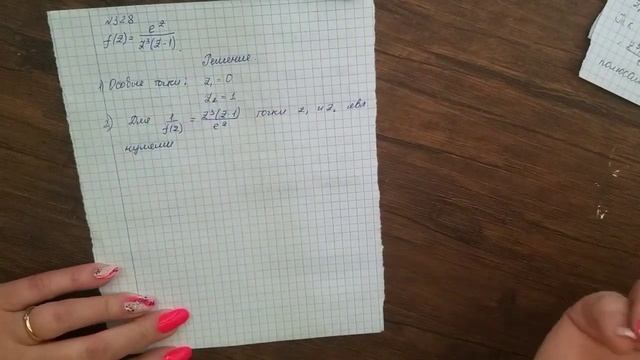 №328
f(z) = e^z / z³(z-1).
Решение.
1) Особые точки: z₁ = 0
z₂ = 1
2) Для 1/f(z) = z³(z-1)/e^z точки z₁ и z₂ явл
нулями
полюсам